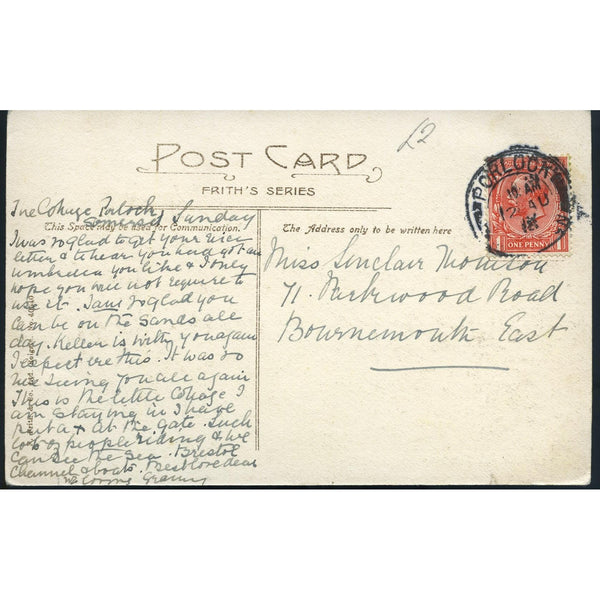 £2
POST CARD
FRITH'S SERIES
PORLOCK
10 AM
AU
ONE PENNY
The Cottage Porlock
Somerset Sunday
This Space may be used for Communication.
The Address only to be written here
I was so glad to get your nice
letter & to hear you had got an
umbrella you like & I only
hope you will not require to
use it. I am so glad you
can be on the sands all
day. is with you again
I expect ere this. It was so
nice seeing you all again
This is the little Cottage I
am staying in I have
put a x at the gate. Such
lots of people riding & we
can see the sea. Bristol
Channel & boats. Best love dear
Granny
Miss Sinclair Moulton
71. Parkwood Road
Bournemouth East